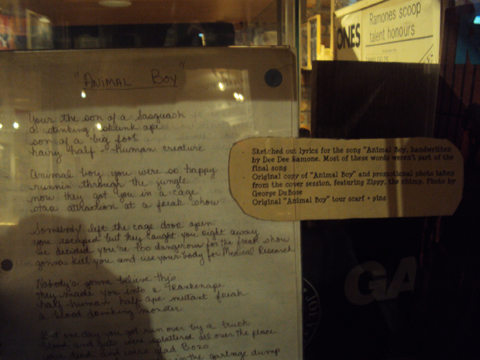 "ANIMAL BOY"
Your the son of a Sasquash
a stinking skunk ape
son of a big foot
hairy half-human creature
Animal boy you were so happy
runnin through the jungle
now they got you in a cage
star attraction at a freak show
Somebody left the cage door open
you escaped but they caught you right away
we decided you're too dangerous for the freak show
gonna kill you and use your body for Medical Research
Nobody's gonna believe this
they made you into a
half human half ape mutant freak
a blood drinking monster
But one day you got run over by a truck
blood and guts were splattered all over the place
your dead Bozo
in the garbage dump
Sketched out lyrics for the song "Animal Boy, handwritten
by Dee Dee Ramone. Most of these words weren't part of the
final song
Original copy of "Animal Boy" and promotional photo
from the cover session, featuring Zippy, the chimp. Photo by
George DuBose
Original "Animal Boy" tour scarf + pins
ONES
Ramones scoop
talent honours
GA